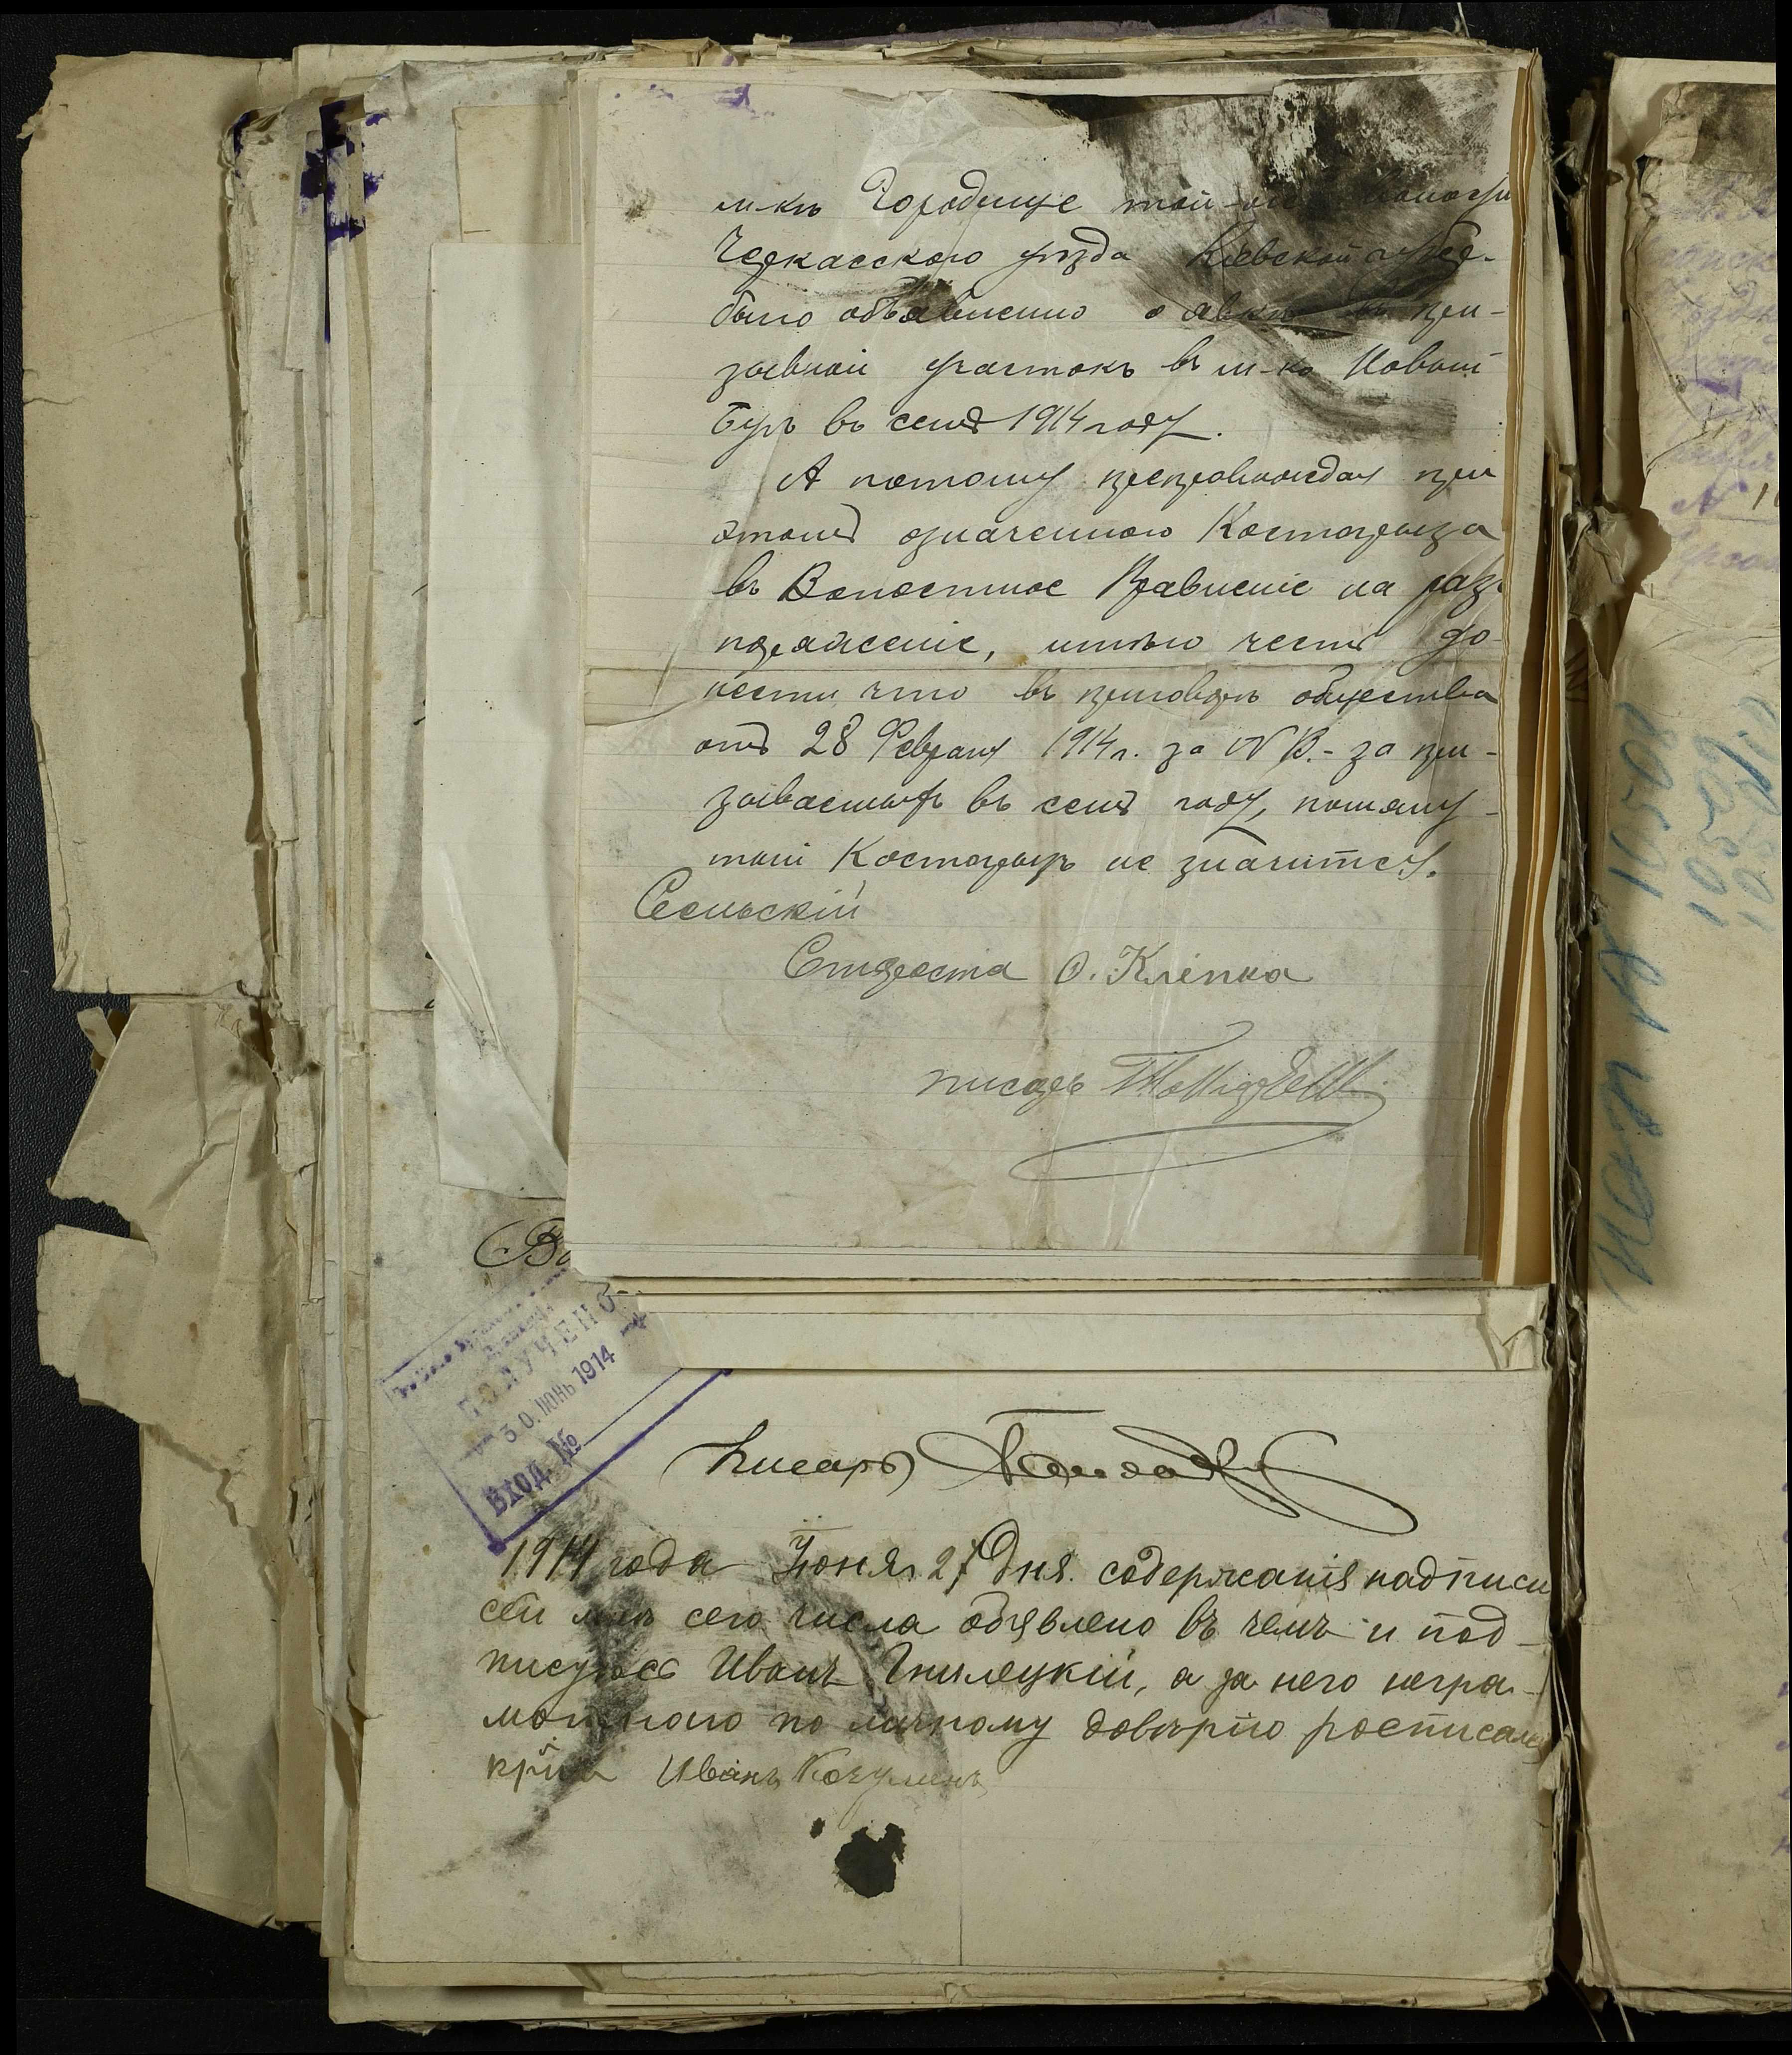 м-кѣ Городище той-же волости
Черкасскаго уѣзда Кіевской губер.
было объявленно о явкѣ въ при-
зывной участокъ въ м-ко Новый
Бугъ въ семъ 1914 году.
А потому препровождая при
этомъ означенного Костогрыза
въ Волостное Правленіе на раз-
поряженіе, имѣю честь до-
нести что въ приговорѣ общества
отъ 28 Февраля 1914 г. за № 13.- за при-
зываемыхъ въ семъ году, помяну-
тый Костогрызъ не значится.
Сельскій
Староста О. Кліпка
писарь
Во
ПОЛУЧЕНО
30. ІЮНЬ 1914
ВХОД. №
Писарь
1914 года Іюня 27 дня. содержанія надписи
сей мнѣ сего числа объявлено въ чемъ и под-
писуюсь Иванъ Гнилецкій, а за него негра-
мотного по личному довѣрію росписался
Иванъ